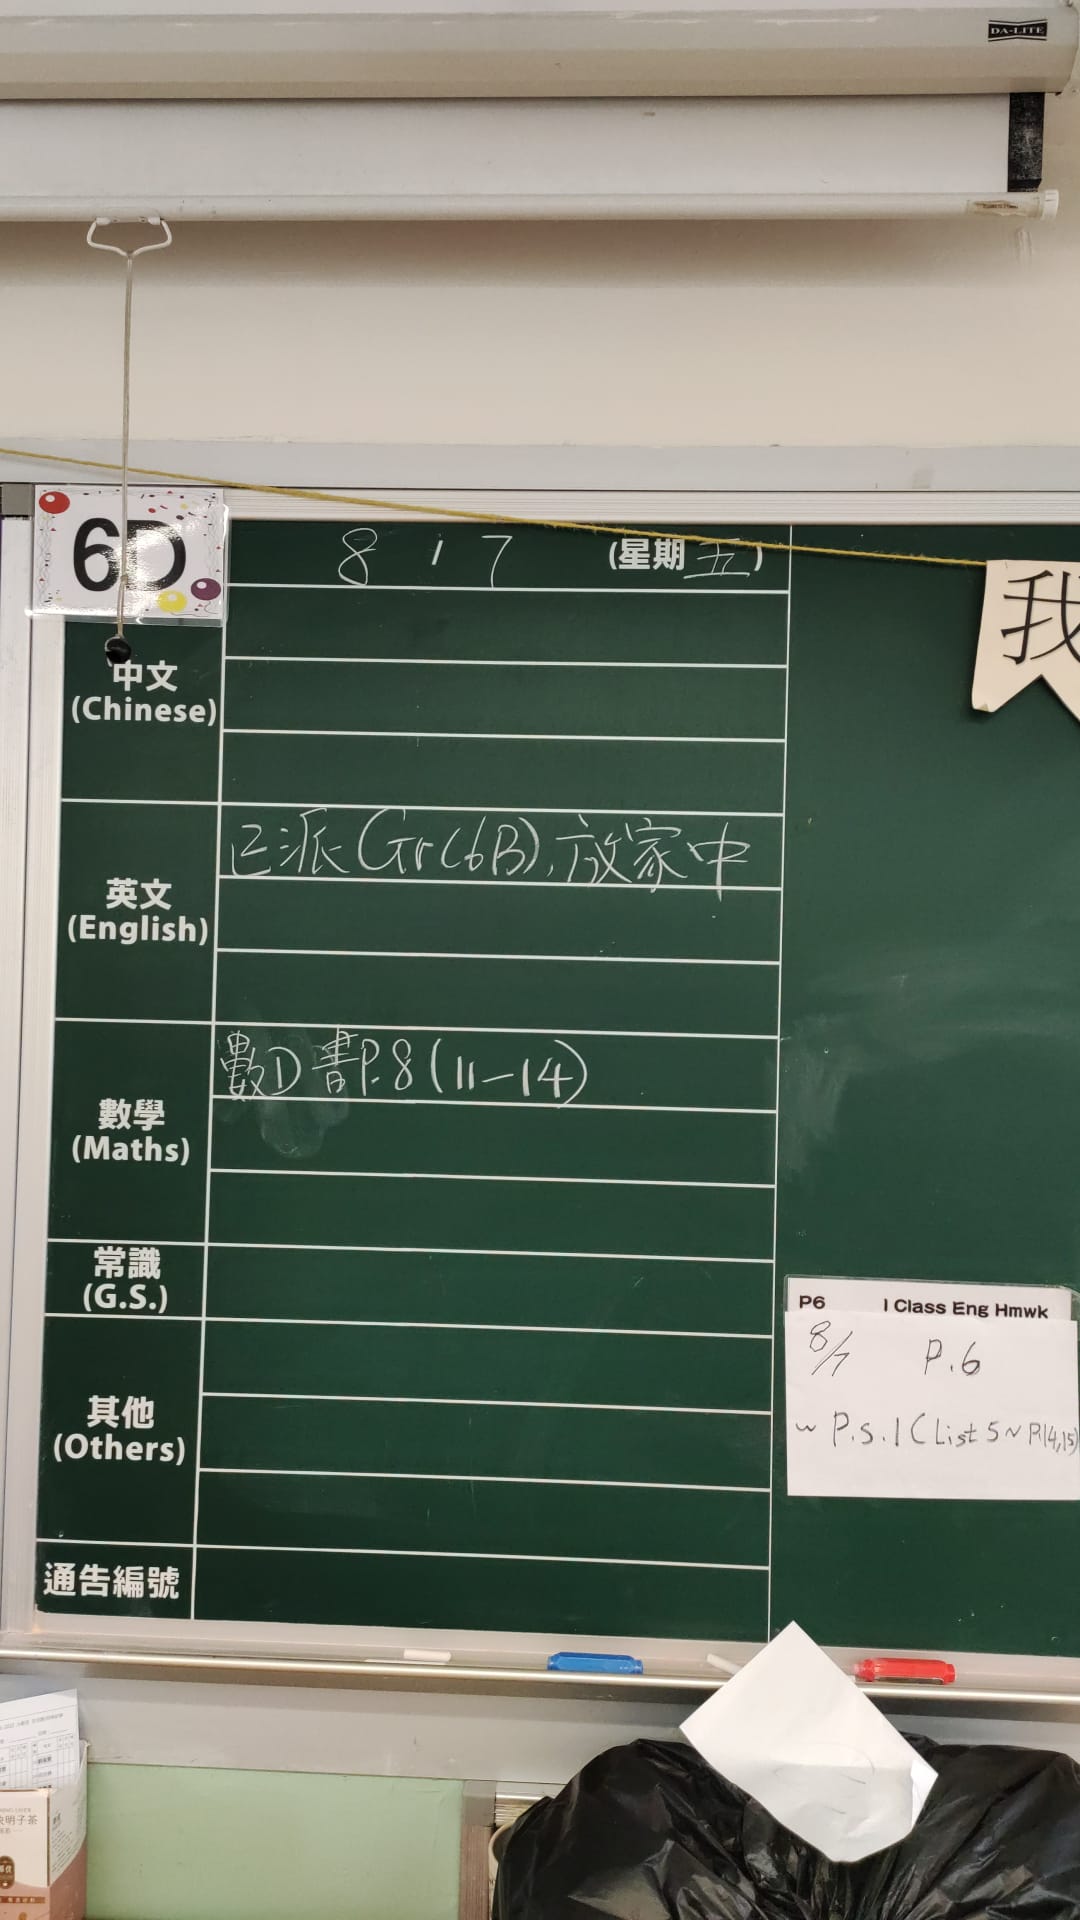 DA-LITE
6D
8 / 7 (星期五)
中文
(Chinese)
英文
(English)
已派(Gr(6B), 放家中
數學
(Maths)
數D 書P.8 (11-14)
常識
(G.S.)
其他
(Others)
通告編號
我
P6 I Class Eng Hmwk
8/7 P.6
~ P.S.1 (List 5 ~ P.14,15)
決明子茶